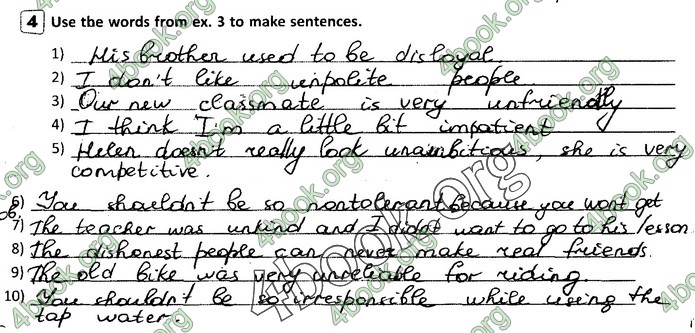 4 Use the words from ex. 3 to make sentences.
1) His brother used to be disloyal
2) I don't like unpolite people
3) Our new classmate is very unfriendly
4) I think I'm a little bit impatient
5) Helen doesn't really look unambitious, she is very
competitive.
6) You shouldn't be so nontolerant because you won't get
job.
7) The teacher was unkind and I didn't want to go to his lesson
8) The dishonest people can never make real friends.
9) The old bike was very unreliable for riding
10) You shouldn't be so irresponsible while using the
tap water.
4book.org